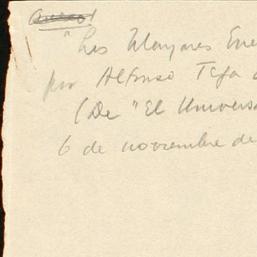 "Los Mayores Ene
por Alfonso Teja
(De "El Universa
6 de noviembre de